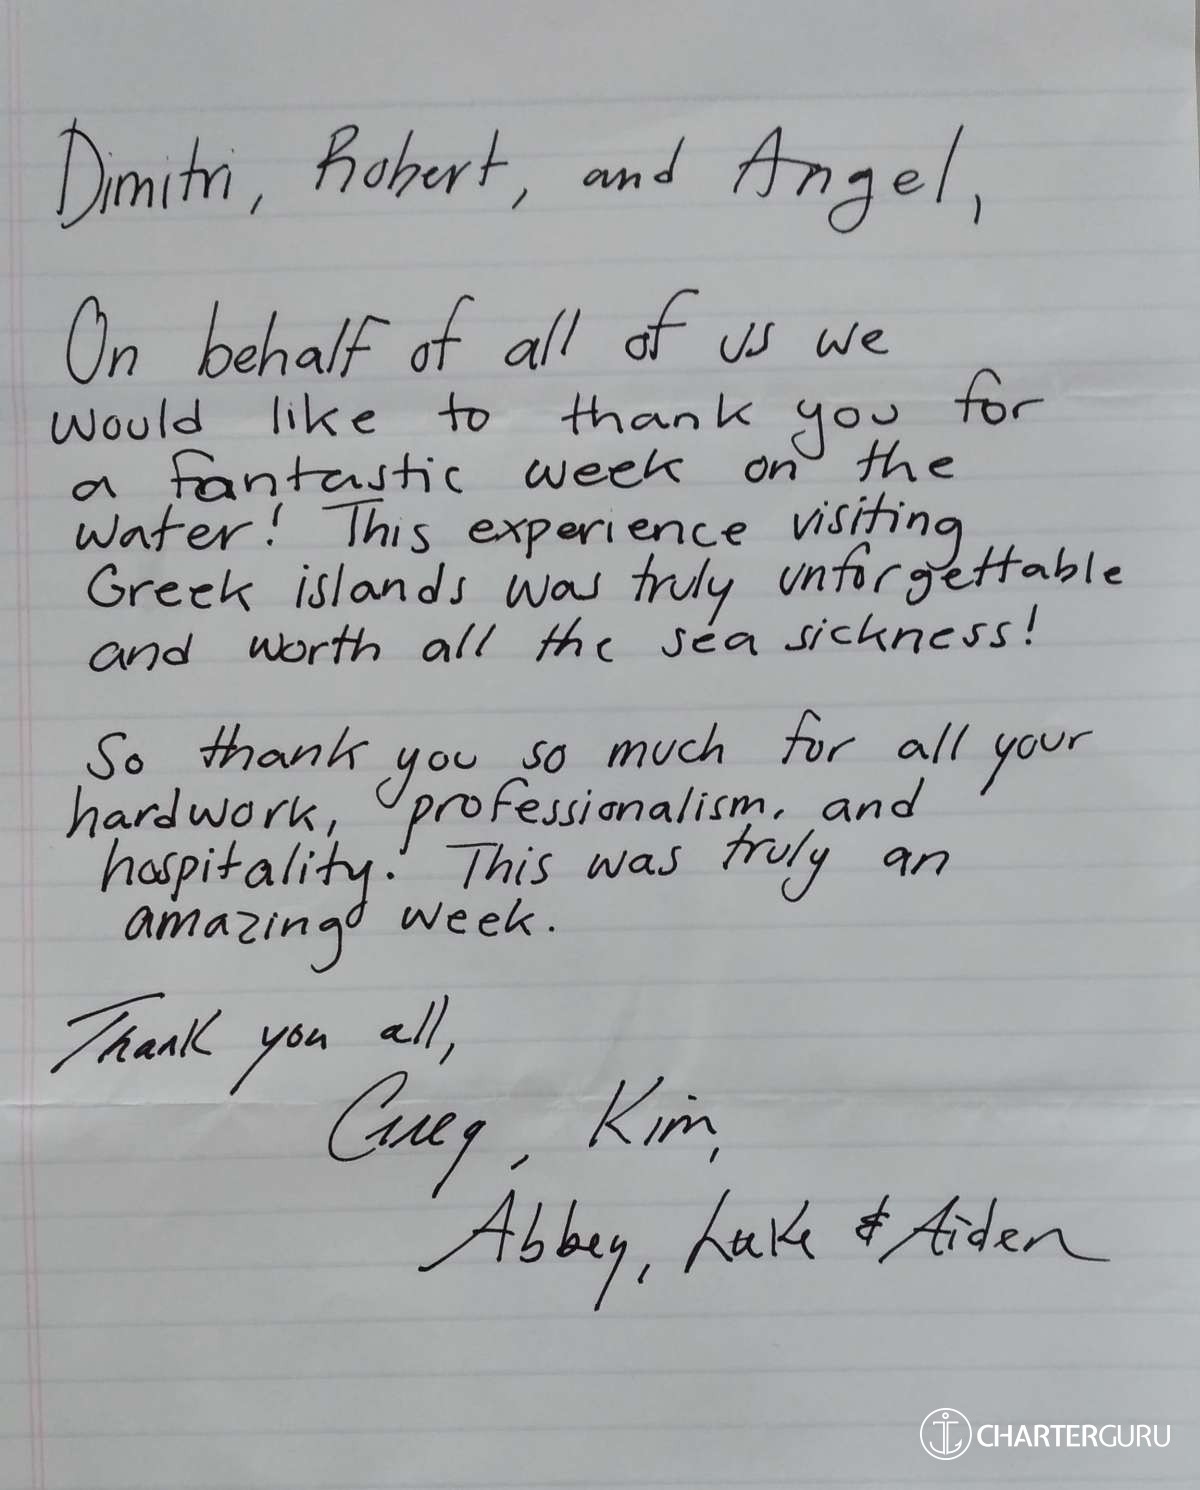 Dimitri, Robert, and Angel,
On behalf of all of us we
would like to thank you for
a fantastic week on the
water! This experience visiting
Greek islands was truly unforgettable
and worth all the sea sickness!
So thank you so much for all your
hardwork, professionalism, and
hospitality! This was truly an
amazing week.
Thank you all,
Greg, Kim,
Abbey, Luke & Aiden
CHARTERGURU